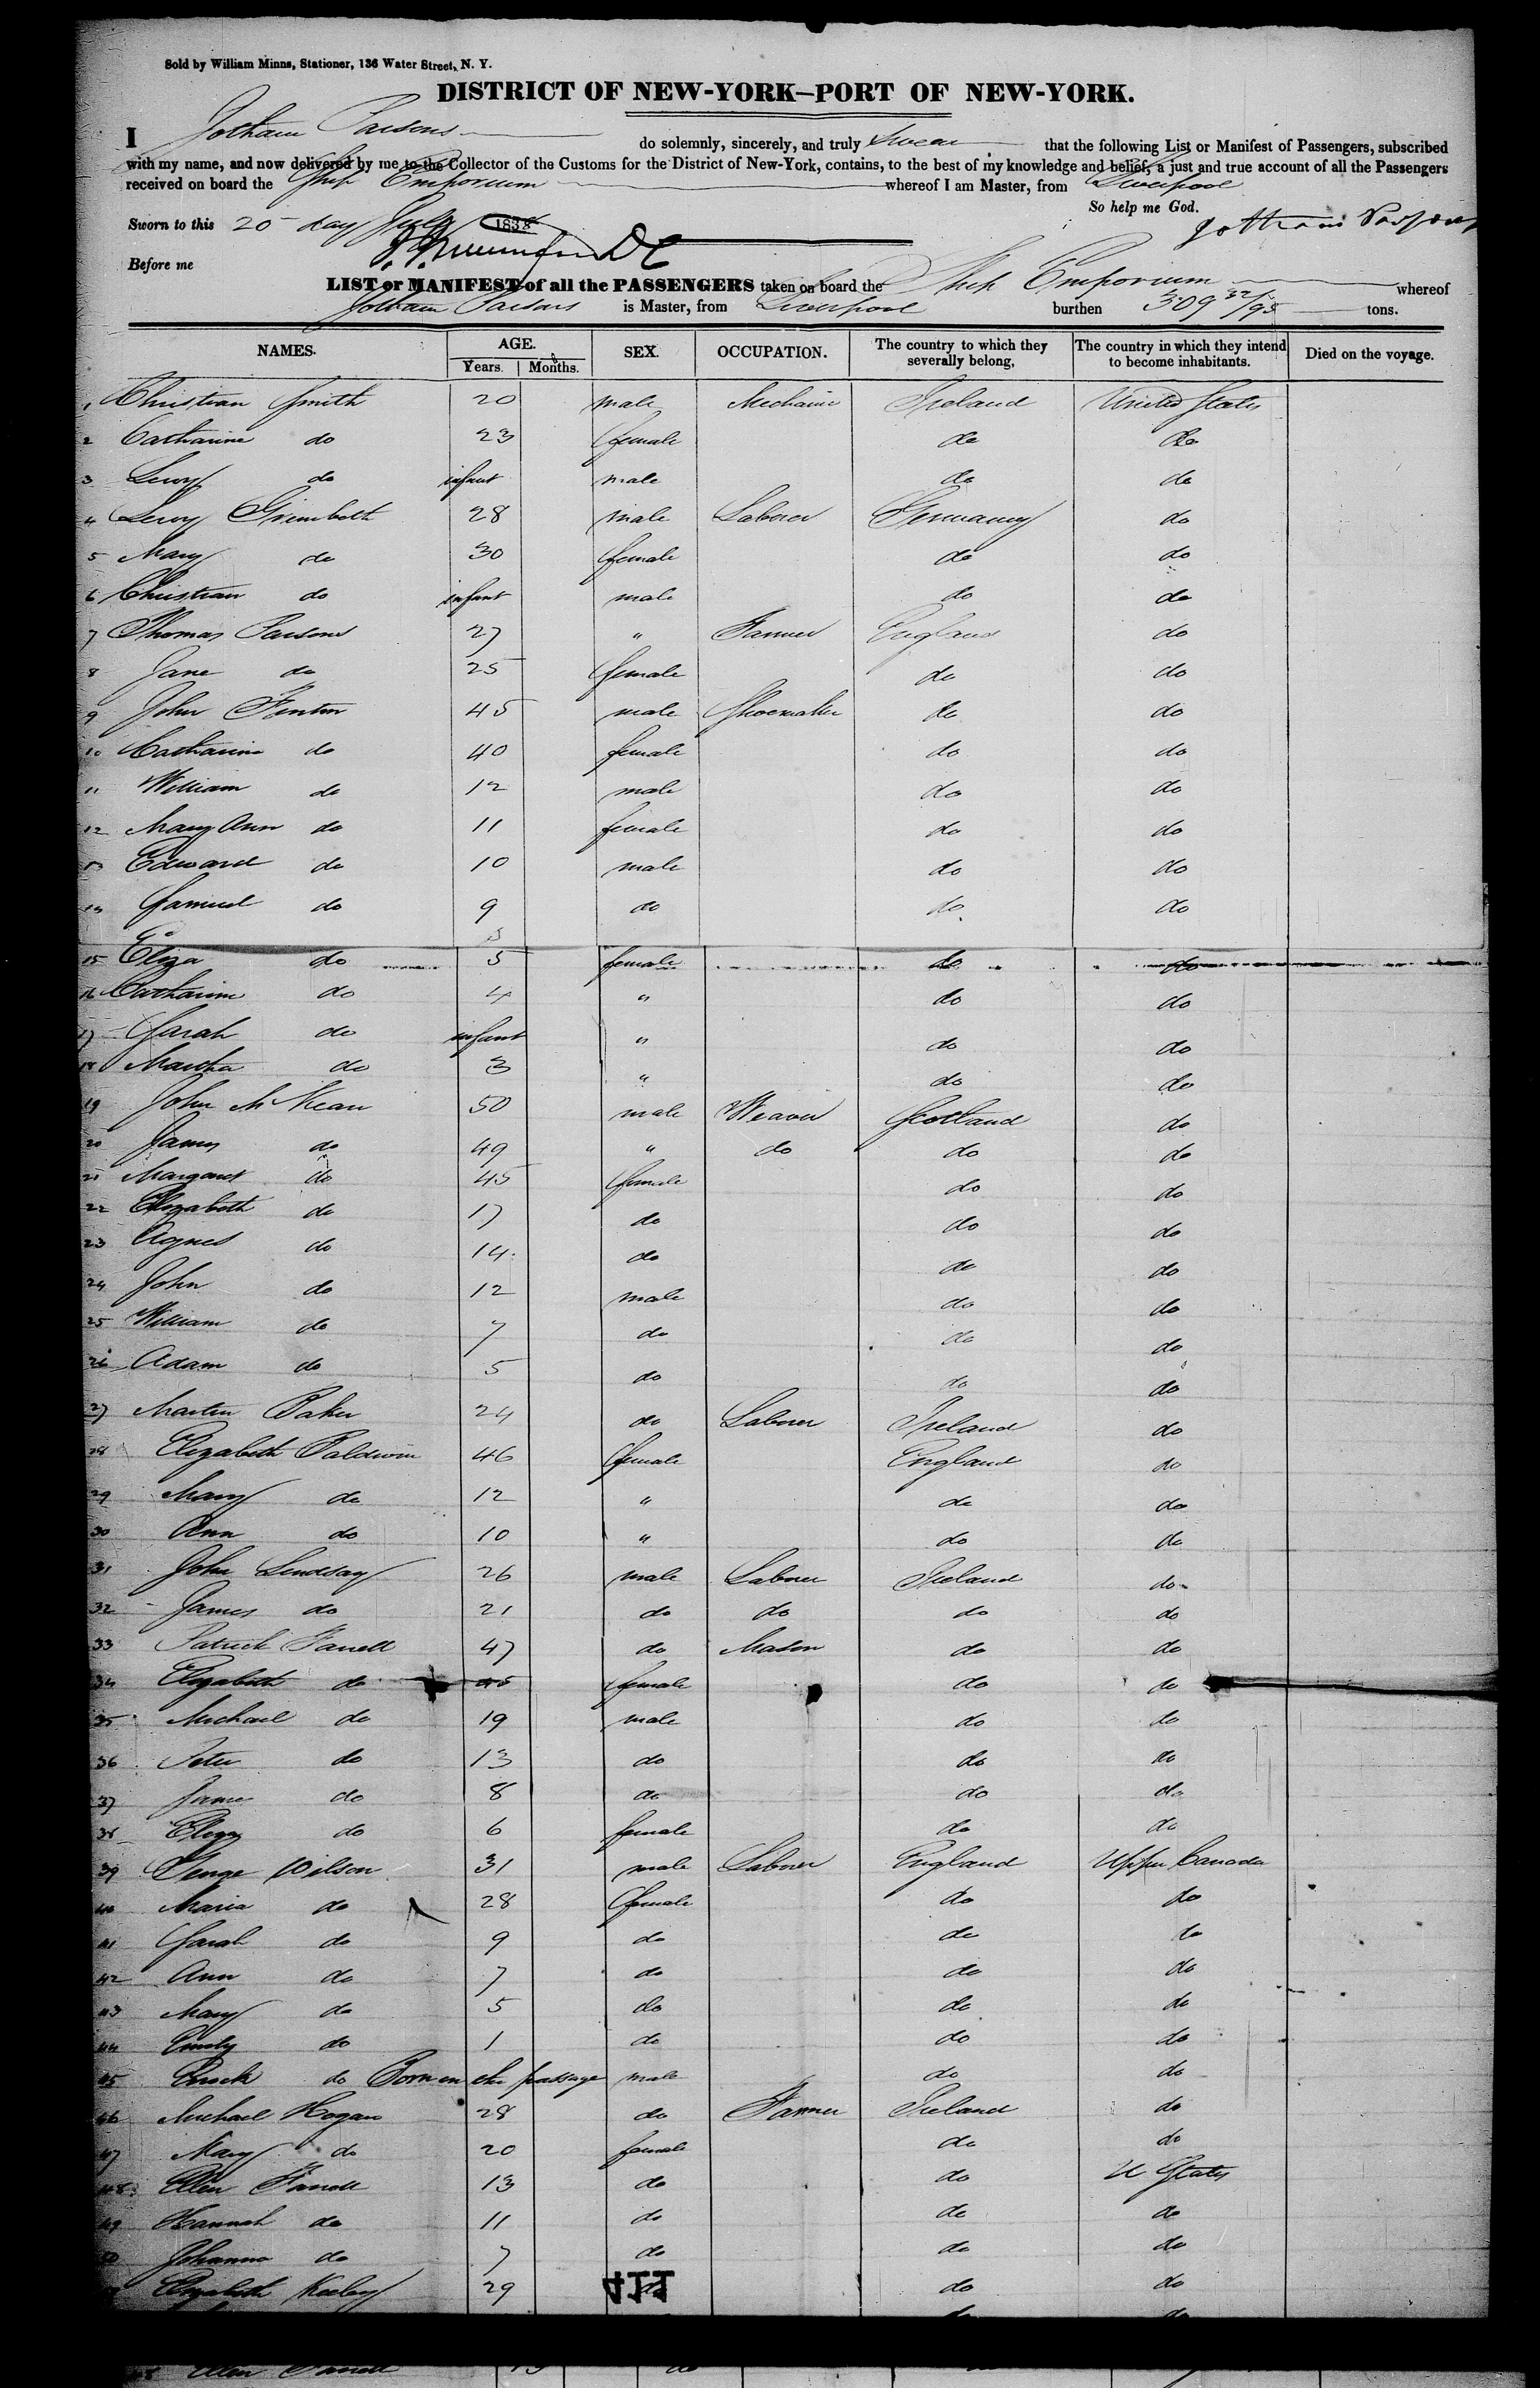 Sold by William Minns, Stationer, 136 Water Street, N. Y.
DISTRICT OF NEW-YORK—PORT OF NEW-YORK.
I Jotham Parsons do solemnly, sincerely, and truly Swear that the following List or Manifest of Passengers, subscribed
with my name, and now delivered by me to the Collector of the Customs for the District of New-York, contains, to the best of my knowledge and belief, a just and true account of all the Passengers
received on board the Ship Emporium whereof I am Master, from Liverpool
So help me God.
Sworn to this 20 day July 1838 Jotham Parsons
Before me
LIST or MANIFEST of all the PASSENGERS taken on board the Ship Emporium whereof
Jotham Parsons is Master, from Liverpool burthen 309 32/95 tons.
NAMES. AGE. Years. Months. SEX. OCCUPATION. The country to which they severally belong, The country in which they intend to become inhabitants. Died on the voyage.
1 Christian Smith 20 male Mechanic Ireland United States
2 Catharine do 23 female do do
3 Leroy do infant male do do
4 Leroy Grimbolt 28 male Laborer Germany do
5 Mary do 30 female do do
6 Christian do infant male do do
7 Thomas Parsons 27 " Farmer England do
8 Jane do 25 female do do
9 John Fenton 45 male Shoemaker do do
10 Catharine do 40 female do do
11 William do 12 male do do
12 Mary Ann do 11 female do do
13 Edward do 10 male do do
14 Samuel do 9 do do do
15 Eliza do 5 female do do
16 Catharine do 4 " do do
17 Sarah do infant " do do
18 Martha do 3 " do do
19 John McKean 50 male Weaver Scotland do
20 James do 49 " do do do
21 Margaret do 45 female do do
22 Elizabeth do 17 do do do
23 Agnes do 14 do do do
24 John do 12 male do do
25 William do 7 do do do
26 Adam do 5 do do do
27 Martin Baker 24 do Laborer Ireland do
28 Elizabeth Baldwin 46 female England do
29 Mary do 12 " do do
30 Ann do 10 " do do
31 John Lindsay 26 male Laborer Ireland do
32 James do 21 do do do do
33 Patrick Farrell 47 do Mason do do
34 Elizabeth do 45 female do do
35 Michael do 19 male do do
36 Peter do 13 do do do
37 James do 8 do do do
38 Eliza do 6 female do do
39 George Wilson 31 male Laborer England Upper Canada
40 Maria do 28 female do do
41 Sarah do 9 do do do
42 Ann do 7 do do do
43 Mary do 5 do do do
44 Emily do 1 do do do
45 Enoch do Born on the passage male do do
46 Michael Hogan 28 do Farmer Ireland do
47 Mary do 20 female do do
48 Ellen Farrell 13 do do U States
49 Hannah do 11 do do do
50 Johanna do 7 do do do
Elizabeth Keeley 29 do do do
do do
48 Ellen Farrell 13 do